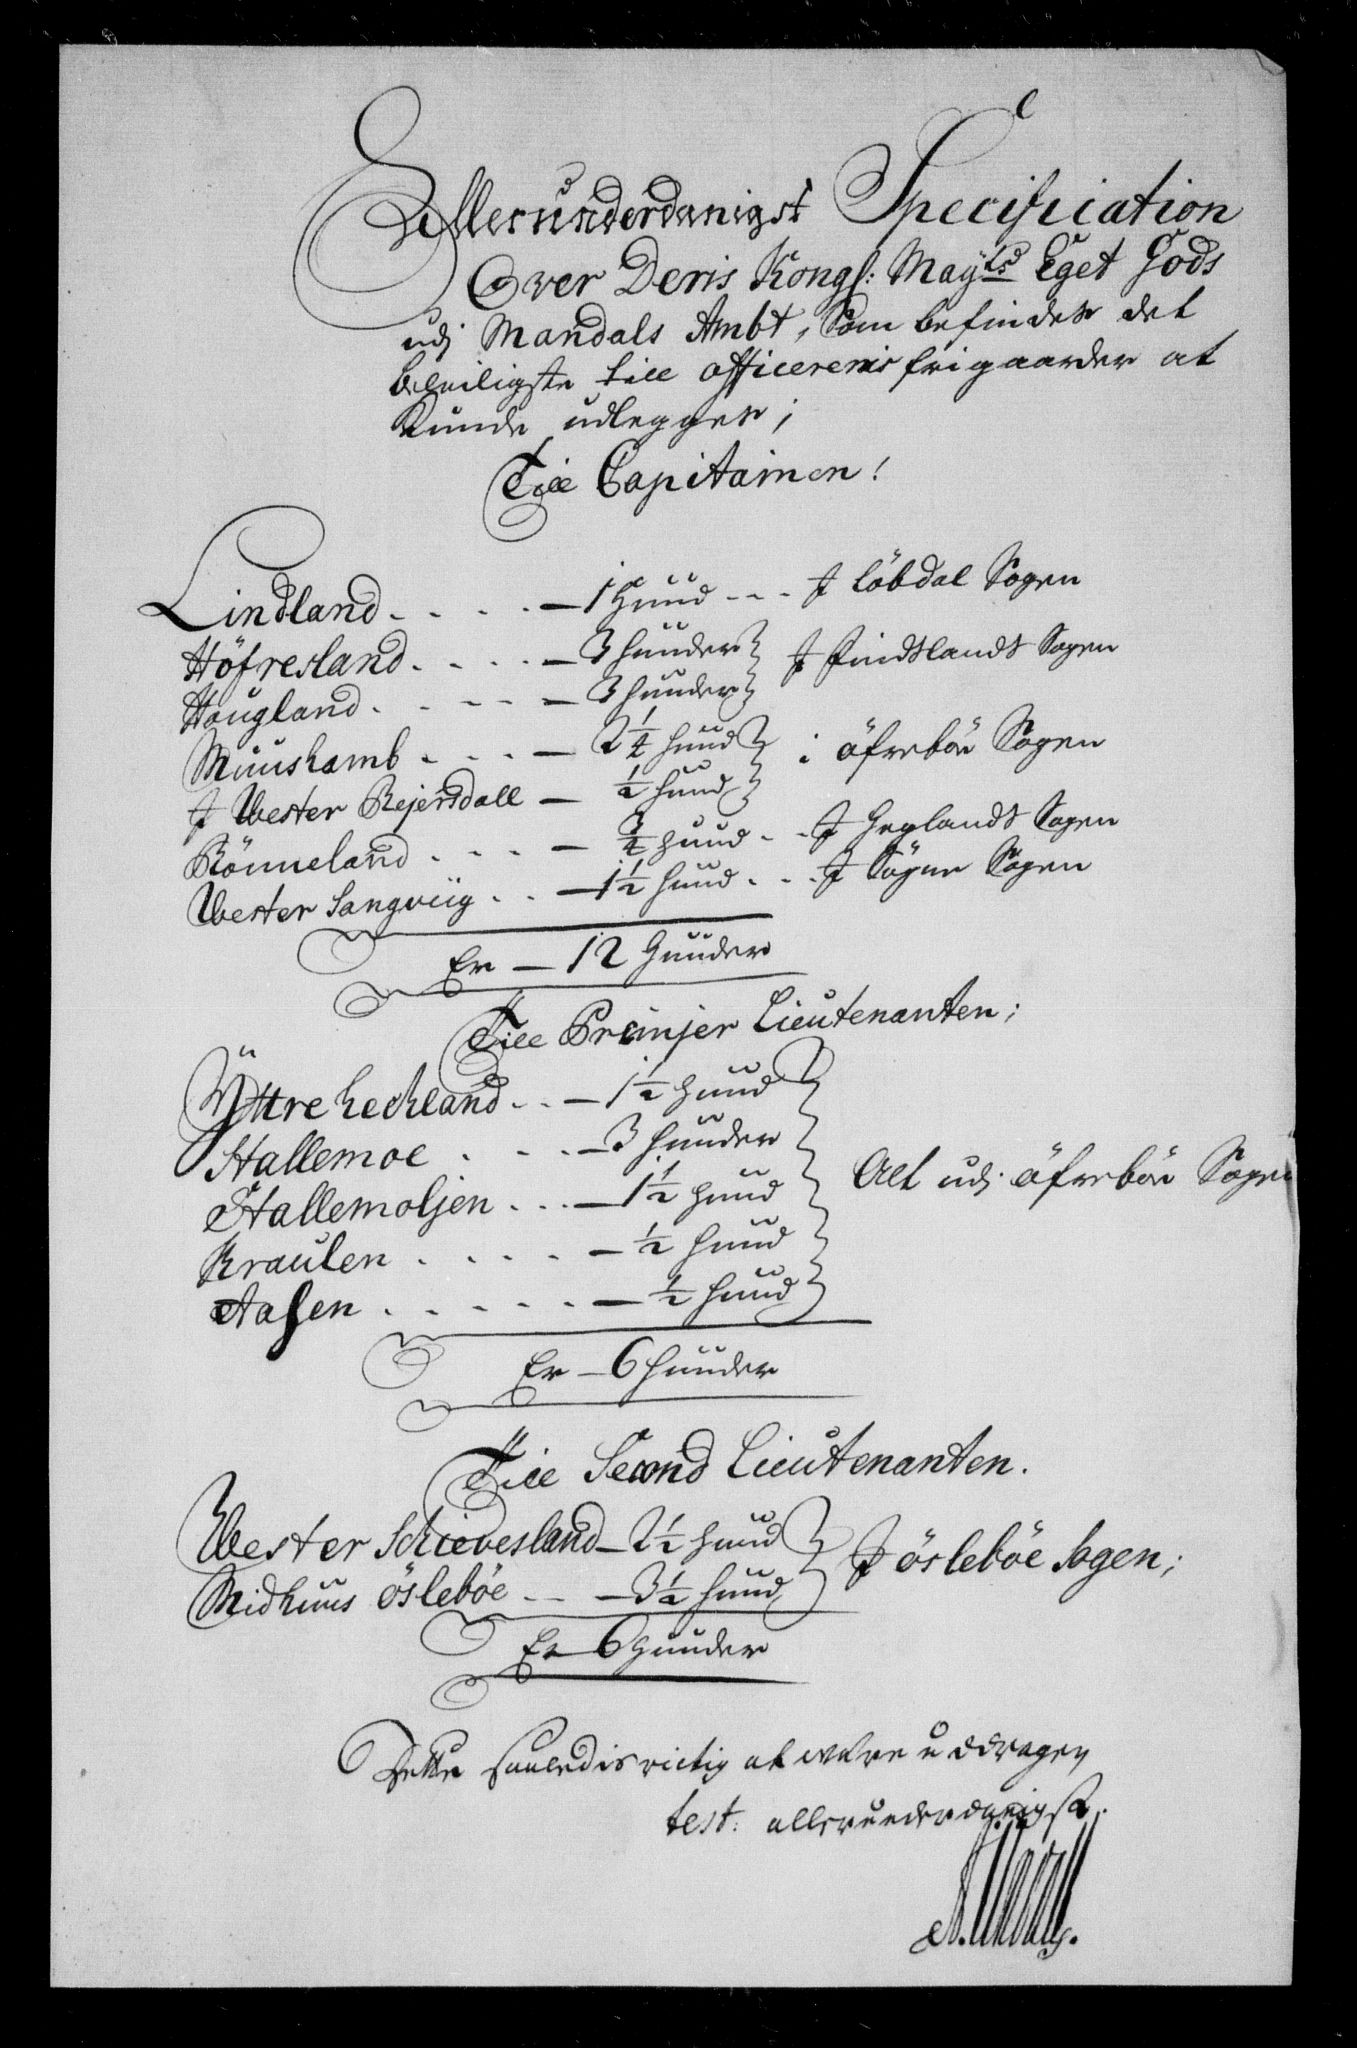 Allerunderdanigst Specification
Over Deris Kongl: Mayts Eget Gods
udj Mandals Ambt, Som befindes det
beleiligste till officerernis frigaarder at
Kunde udlegges;
Till Capitainen!
Lindland . . . . . — 1 Huud - - . J Löbdal Sogen
Höfresland . . . . — 3 huuder } J Findtlandt Sogen
Hougland . . - - — 3 huuder }
Muushamb . . . . — 2 1/4 huud } i öfreböe Sogen
J Wester Rejersdall — 1/2 huud }
Rönneland . . . . — 3/4 huud . . J Heglandt Sogen
Wester Langviig . . — 1 1/2 huud . . . J Sögne Sogen
Er — 12 Huuder
Till Premjer Lieutenanten;
Yttre Lechland . . — 1 1/2 huud
Hallemoe . . . . — 3 huuder
Hallemoljen . . . — 1 1/2 huud } Alt udj öfreböe Sogen
Kraulen . . . . . — 1/2 huud
Aasen . . . . . . — 1/2 huud
Er — 6 huuder
Till Second Lieutenanten.
Wester Schievesland — 2 1/2 huud } J öslebøe Sogen;
Midhuus öslebøe — — 3 1/2 huud }
Er 6 Huuder
Dette saaledis rictig at were uddragen
test: allerunderdanigst.